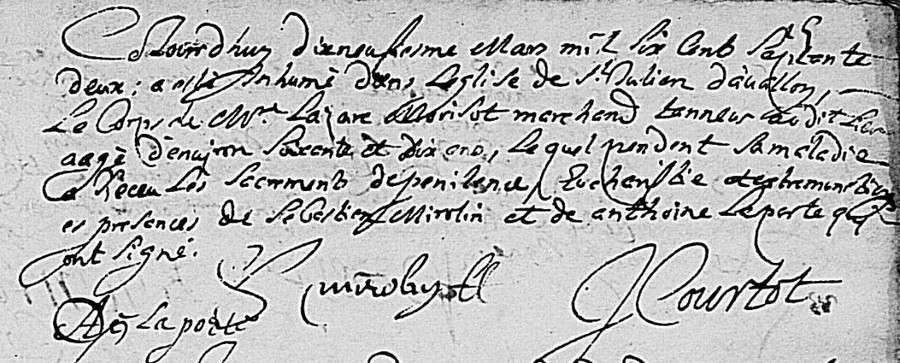 Ce Jourdhuy dixneufiesme Mars mil six Cents septente
deux : a esté Inhumé dans L'eglise de St Julien d'avallon,
Le Corps de Mre Lazare Morisot marchand tanneur audit Lieu
aagé d'environ Soixante et dix ans, Lequel pendent sa maladie
a Receu Les sacrements de penitence, Eucharistie et extremonction
es presences de Sebastien Mirolin et de anthoine Laporte qui
ont signé.
J Courtot
A Laporte